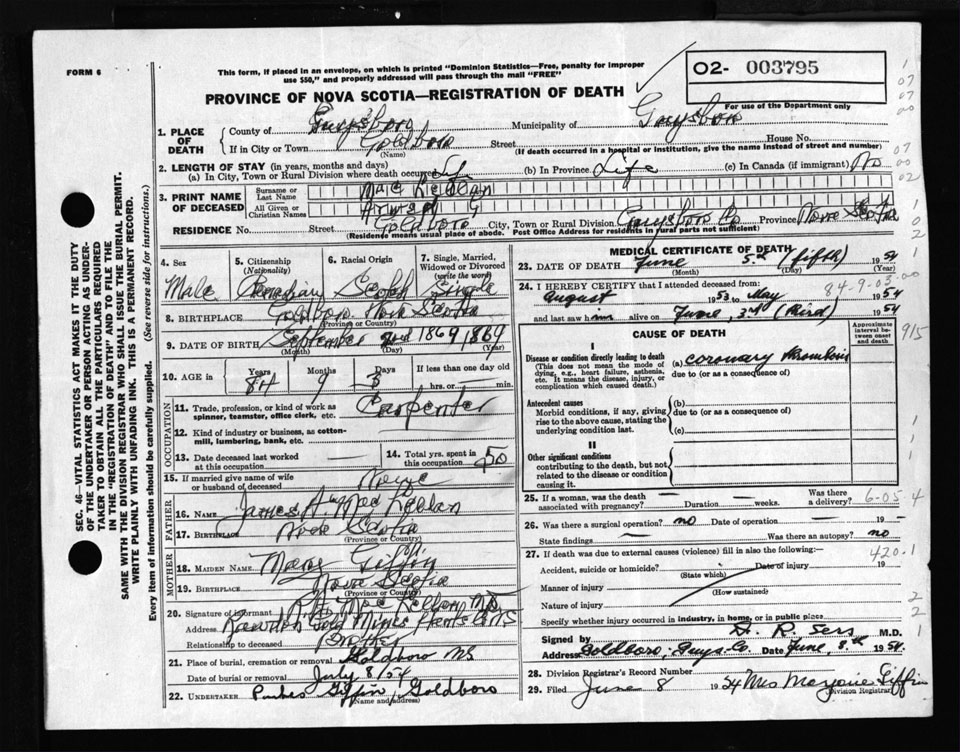 FORM 6
This form, if placed in an envelope, on which is printed "Dominion Statistics—Free, penalty for improper
use $50," and properly addressed will pass through the mail "FREE"
02- 003795
For use of the Department only
PROVINCE OF NOVA SCOTIA—REGISTRATION OF DEATH
1. PLACE OF DEATH
County of Guysboro Municipality of Guysboro
If in City or Town Goldboro Street House No.
(Name) (If death occurred in a hospital or institution, give the name instead of street and number)
2. LENGTH OF STAY (in years, months and days)
(a) In City, Town or Rural Division where death occurred Life (b) In Province Life (c) In Canada (if immigrant) No
3. PRINT NAME OF DECEASED
Surname or Last Name
All Given or Christian Names
RESIDENCE No. Street Goldboro City, Town or Rural Division Guysboro Co Province Nova Scotia
(Residence means usual place of abode. Post Office Address for residents in rural parts not sufficient)
4. Sex
Male
5. Citizenship (Nationality)
Canadian
6. Racial Origin
Scotch
7. Single, Married, Widowed or Divorced (write the word)
Single
8. BIRTHPLACE Goldboro Nova Scotia
(Province or Country)
9. DATE OF BIRTH September 2nd 1869 1869
(Month) (Day) (Yr)
10. AGE in Years Months Days If less than one day old
84 9 3 hrs. or min.
OCCUPATION
11. Trade, profession, or kind of work as spinner, teamster, office clerk, etc. Carpenter
12. Kind of industry or business, as cotton-mill, lumbering, bank, etc.
13. Date deceased last worked at this occupation
14. Total yrs. spent in this occupation 50
15. If married give name of wife or husband of deceased None
FATHER
16. NAME James A. MacLellan
17. BIRTHPLACE Nova Scotia
(Province or Country)
MOTHER
18. MAIDEN NAME Mary Giffin
19. BIRTHPLACE Nova Scotia
(Province or Country)
20. Signature of informant
Address Rawdon Gold Mines Hants Co NS
Relationship to deceased Brother
21. Place of burial, cremation or removal Goldboro NS
Date of burial or removal July 8/54
22. UNDERTAKER Giffin, Goldboro
(Name and address)
MEDICAL CERTIFICATE OF DEATH
23. DATE OF DEATH June 5th (fifth) 1954
(Month) (Day) (Year)
24. I HEREBY CERTIFY that I attended deceased from:
August 1953 to May 1954
84-9-03
and last saw him alive on June, 3rd (third) 1954
CAUSE OF DEATH
Approximate interval between onset and death
I
Disease or condition directly leading to death (a) coronary thrombosis
(This does not mean the mode of dying, e.g., heart failure, asthenia, etc. It means the disease, injury, or complication which caused death.)
due to (or as a consequence of)
Antecedent causes
Morbid conditions, if any, giving rise to the above cause, stating the underlying condition last.
(b)
due to (or as a consequence of)
(c)
II
Other significant conditions contributing to the death, but not related to the disease or condition causing it.
25. If a woman, was the death associated with pregnancy? Duration weeks. Was there a delivery? 6-054
26. Was there a surgical operation? no Date of operation 19
State findings Was there an autopsy? no
27. If death was due to external causes (violence) fill in also the following:— 420.1
Accident, suicide or homicide? Date of injury 19
(State which)
Manner of injury
(How sustained)
Nature of injury
Specify whether injury occurred in industry, in home, or in public place
Signed by M.D.
Address Goldboro, Guys. Co. Date June, 8th 1954.
28. Division Registrar's Record Number
29. Filed June 8 1954 Mrs Marjorie Giffin
Division Registrar
SEC. 46—VITAL STATISTICS ACT MAKES IT THE DUTY
OF THE UNDERTAKER OR PERSON ACTING AS UNDER-
TAKER TO OBTAIN ALL THE PARTICULARS REQUIRED
IN THE "REGISTRATION OF DEATH" AND TO FILE THE
SAME WITH THE DIVISION REGISTRAR WHO SHALL ISSUE THE BURIAL PERMIT.
WRITE PLAINLY WITH UNFADING INK. THIS IS A PERMANENT RECORD.
Every item of information should be carefully supplied. (See reverse side for instructions.)
915